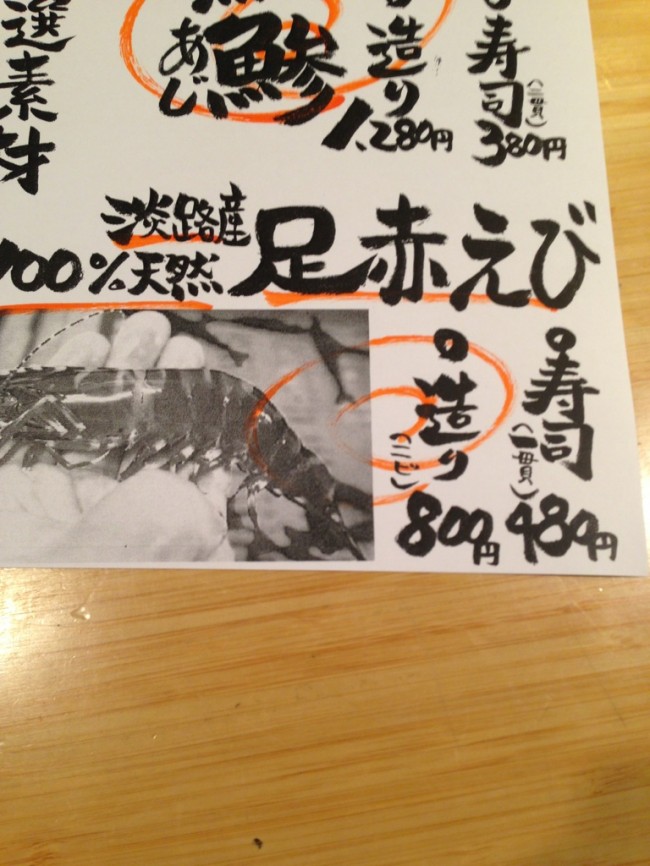 選素材
鯵
あじ
造り
1,280円
寿司
(二貫)
380円
淡路産
100%天然
足赤えび
造り
(二ピ)
800円
寿司
(一貫)
480円